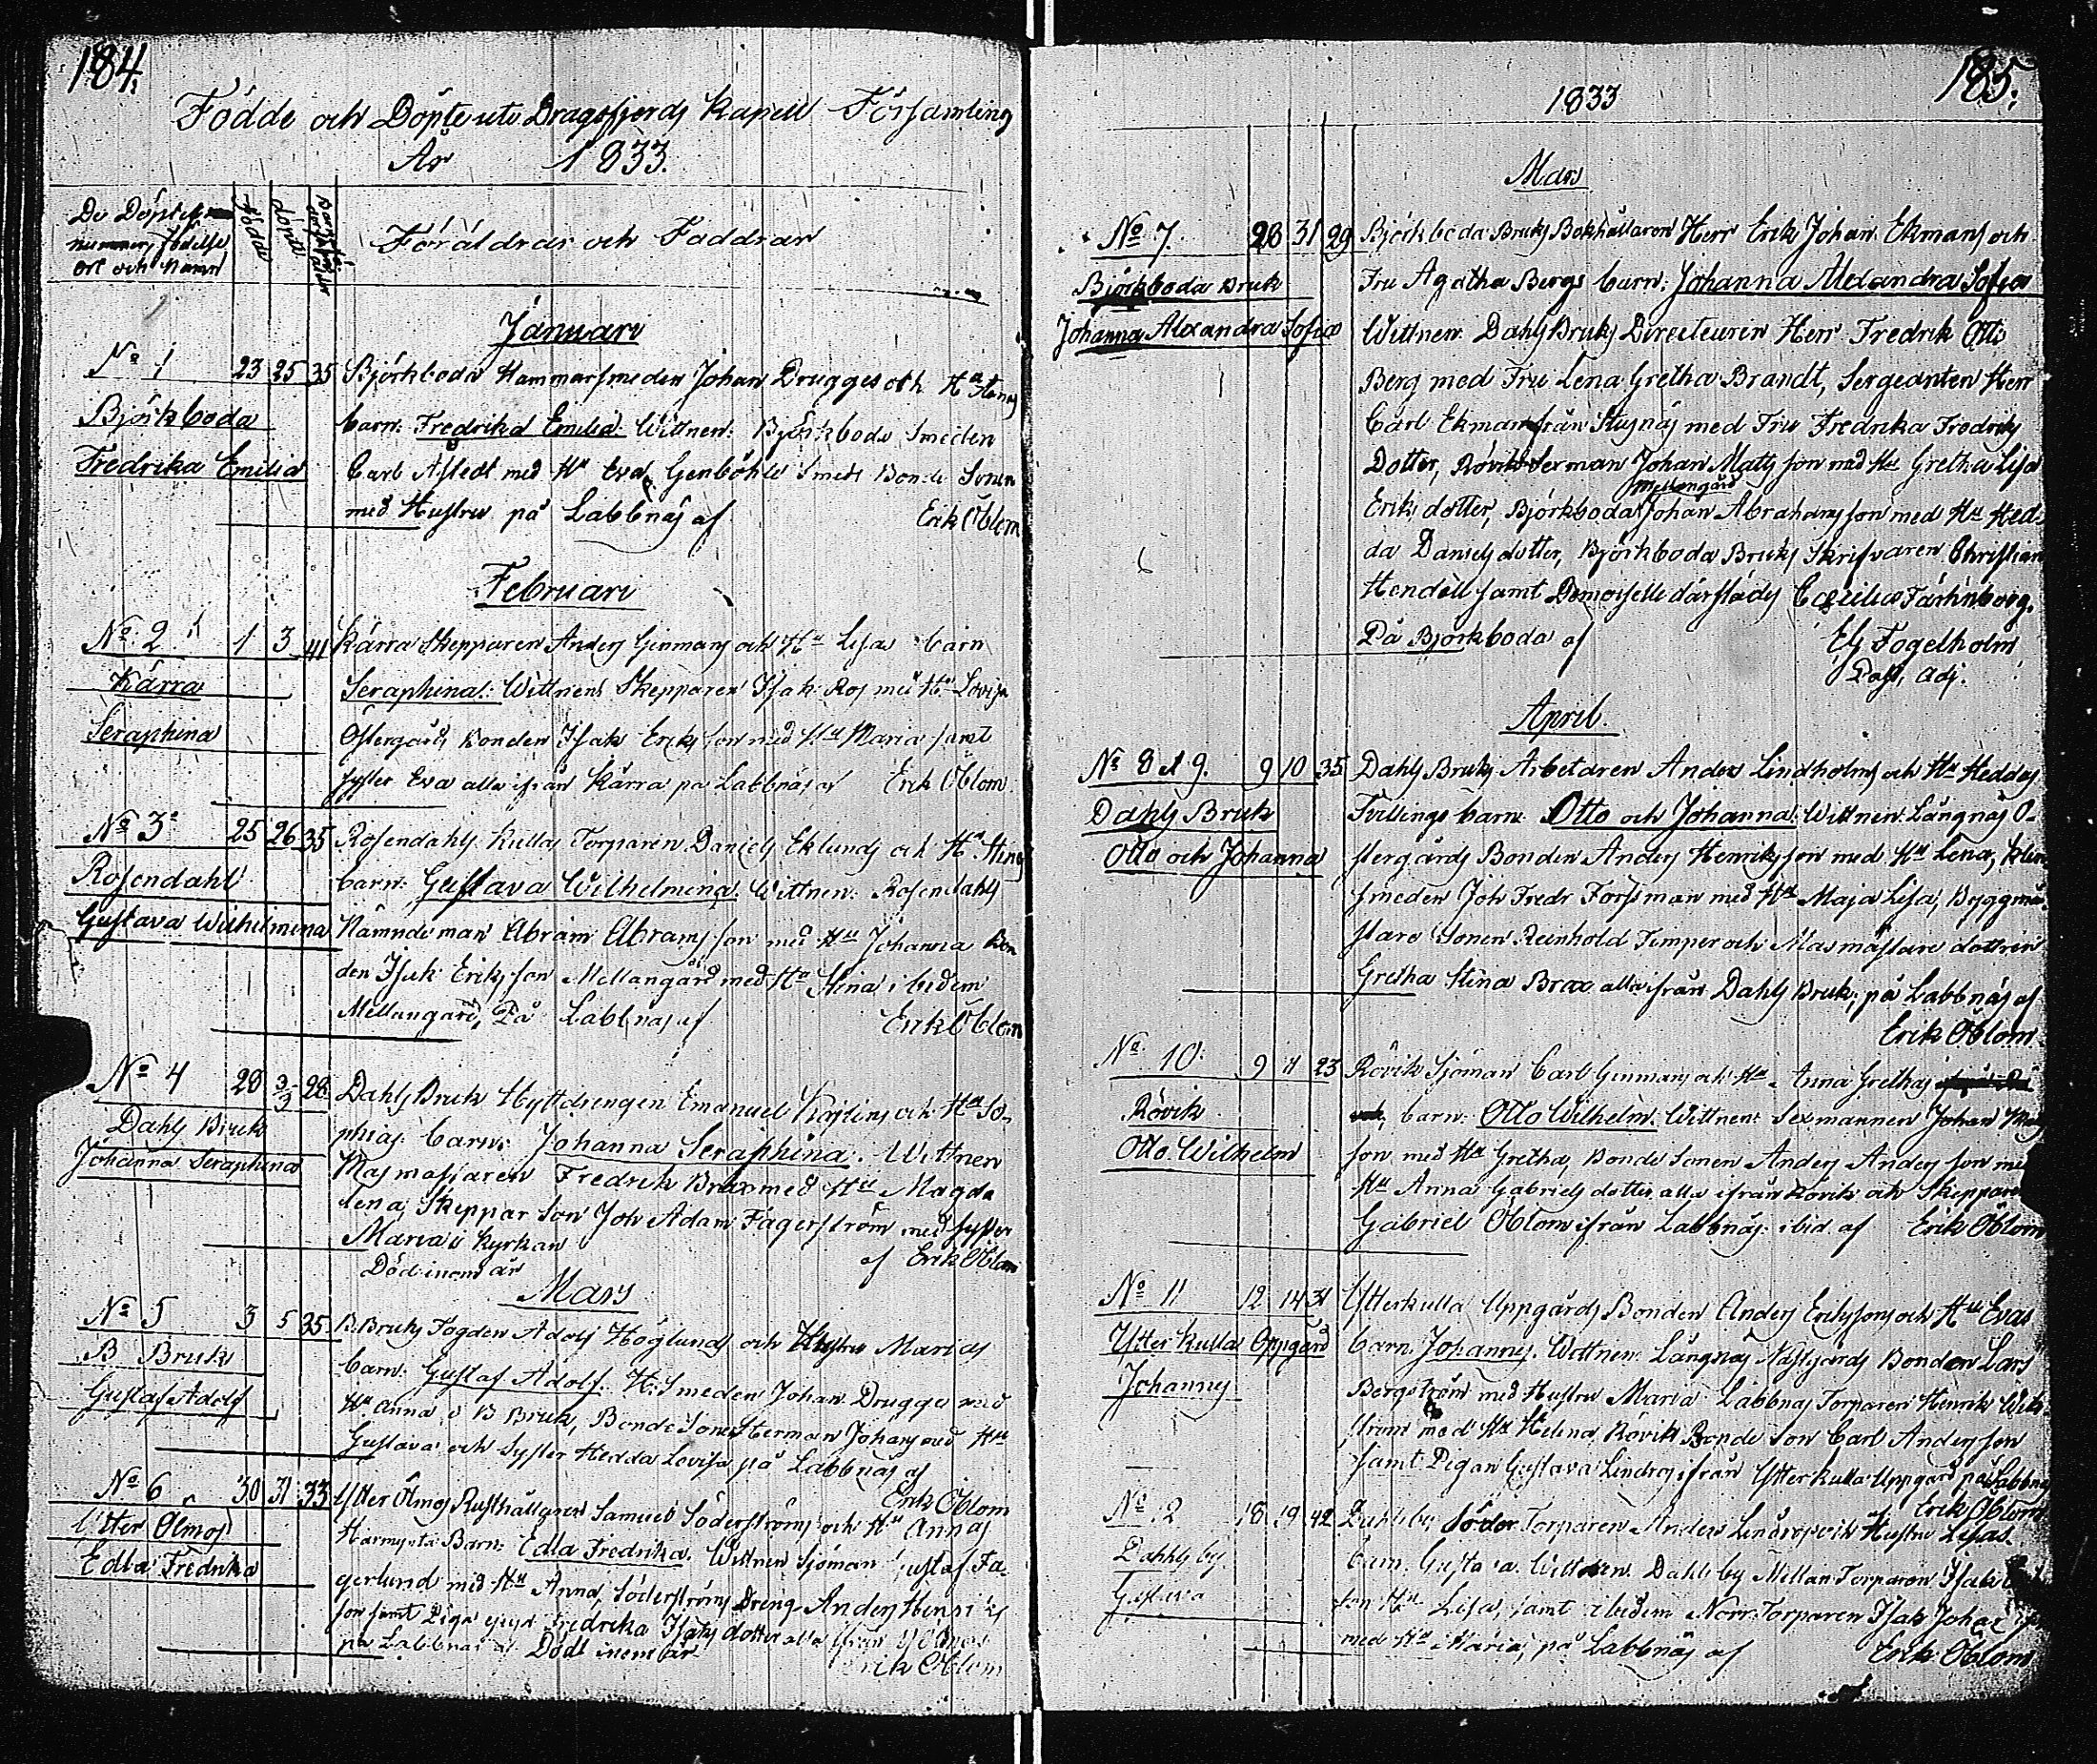 184.
Födde och Döpte uti Dragsfjerds Kapell Församling
År 1833.
De Döptes
nummer, födelse
ort och namn
födda
döpta
Föräldrar och Faddrar
Januari
No 1 23 25 35 Björkboda Hammarsmeden Johan Drugges och Hu Stinas
Björkboda barn: Fredrika Emilia. Wittnen: Björkboda Smeden
Fredrika Emilia Carl Alstedt med Hu Eva, Genböhle Smeds Bonde Sonen
med Hustru på Labbnäs af Erik Oblom
Februari
No 2 1 3 41 Kärra Skepparen Anders Ginmans och Hu Lisas barn
Kärra Seraphina. Wittnen: Skepparen Isak Ros med Hu Lovisa
Seraphina Östergårds Bonden Isak Eriks son med Hu Maria samt
syster Eva alla ifrån Kärra på Labbnäs af Erik Oblom.
No 3 25 26 35 Rosendahls Kullas Torparen Daniels Eklunds och Hu Stinas
Rosendahl barn: Gustava Wilhelmina. Wittnen: Rosendahls
Gustava Wilhelmina Nämndeman Abram Abrams son med Hu Johanna Bon
den Isak Eriks son Mellangård med Hu Stina ibidem
Mellangård, På Labbnäs af Erik Oblom
No 4 28 3/3 28 Dahls Bruk Hyttdrengen Emanuel och Hu So-
Dahls Bruk phias barn: Johanna Seraphina. Wittnen
Johanna Seraphina Masmästaren Fredrik Brax med Hu Magda
lena, Skeppar Son Joh Adam Fagerström med syster
Maria i Kyrkan af Erik Oblom
Död inom år
Mars
No 5 3 5 35 B. Bruks Fogden Adolf Höglunds och Hustru Marias
B Bruk barn: Gustaf Adolf. H. Smeden Johan Drugge med
Gustaf Adolf Hu Anna i B Bruk, Bonde Sonen Herman Johans med Hu
Gustava och Syster Hedda Lovisa på Labbnäs af
Erik Oblom
No 6 30 31 33 Ytter Ölmos Rusthållaren Samuel Söderströms och Hu Annas
Ytter Ölmos Barn: Edla Fredrika. Wittnen Sjöman Gustaf Fa-
Edla Fredrika gerlund med Hu Anna, Söderströms Dreng Anders Henriks
son samt Piga Fredrika Isaks dotter alla ifrån Y Ölmos
på Labbnäs af Död inom år Erik Oblom
185.
1833
Mars
No 7. 28 31 29 Björkboda Bruks Bokhållaren Herr Erik Johan Ekmans och
Björkboda Bruk Fru Agatha Bergs barn: Johanna Alexandra Sofia
Johanna Alexandra Sofia Wittnen: Dahls Bruks Directeuren Herr Fredrik Otto
Berg med Fru Lena Gretha Brandt, Sergeanten Herr
Carl Ekman från med Fru Fredrika Fredriks
Dotter, Rövik Serman Johan Mats son med Hu Gretha Lisa
Mellangård
Eriks dotter, Björkboda Johan Abrahams son med Hu Hed-
da Daniels dotter, Björkboda Bruks Skrifvaren Christian
Hendell samt Demoiselle därstädes Cæcilia
På Björkboda af Ej Fogelholm
Past. adj.
April
No 8 & 9. 9 10 35 Dahls Bruks Arbetaren Anders Lindholms och Hu Heddas
Dahls Bruk Tvillings barn: Otto och Johanna. Wittnen: Långnäs Ö-
Otto och Johanna stergårds Bonden Anders Henriks son med Hu Lena, Klen
smeden Joh Fredr Forssman med Hu Maja Lisa, Byggmä-
stare Sonen Reinhold Timper och Masmästare dottren
Gretha Stina Brax alla ifrån Dahls Bruk, på Labbnäs af
Erik Oblom
No 10. 9 11 23 Rövik Sjöman Carl Ginmans och Hu Anna Grethas
Rövik barn: Otto Wilhelm. Wittnen: Sexmannen Johan Mats
Otto Wilhelm son med Hu Gretha, Bonde Sonen Anders Anders son med
Hu Anna Gabriels dotter alla ifrån Rövik och Skepparen
Gabriel Oblom ifrån Labbnäs ibid. af Erik Oblom
No 11 12 14 31 Ytterkulla Uppgårds Bonden Anders Erikssons och Hu Evas
Ytter Kulla Oppgård barn. Johannes. Wittnen: Långnäs Bonden Lars
Johannes Bergström med Hustru Maria Labbnäs Torparen Henrik Wik-
ström med Hu Helena, Rövik Bonde Son Carl Anders son
samt Pigan Gustava Lindros ifrån Ytterkulla Uppgård på Labbnäs
Erik Oblom
No 12 18 19 42 Dahlsby Söder Torparen Anders Lindros och Hustru Lisas.
Dahls by barn. Gustava. Wittnen. Dahls by Mellan Torparen Isak
Gustava son Hu Lisa, samt ibidem Norr Torparen Isak Johans son
med Hu Maria, på Labbnäs af Erik Oblom